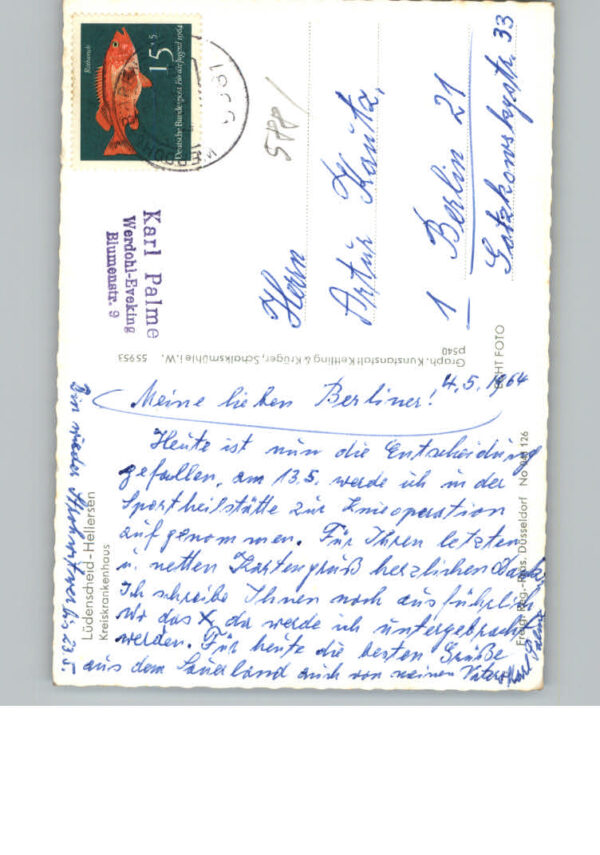 4.5.1964
Meine lieben Berliner!
Heute ist nun die Entscheidung
gefallen, am 13.5. werde ich in der
Sportheilstätte zur Knieoperation
aufgenommen. Für Ihren letzten
u. netten Kartengruß herzlichen Dank,
Ich schreibe Ihnen noch ausführlich
wo das X, da werde ich untergebracht
werden. Für heute die besten Grüße
aus dem Sauerland auch von meinen
Bin wieder bis 23.5.
Lüdenscheid-Hellersen
Kreiskrankenhaus
Karl Palme
Werdohl-Eveking
Blumenstr. 9
Graph. Kunstanstalt Kettling & Krüger, Schalksmühle i.W. 55953
p540
ECHT FOTO
Freig. Reg.-Präs. Düsseldorf No 126
Rotbarsch
15+5
Deutsche Bundespost Für die Jugend 1964
588/
Herrn
Artur Kautz,
1 Berlin 21
Gotzkowskystr. 33